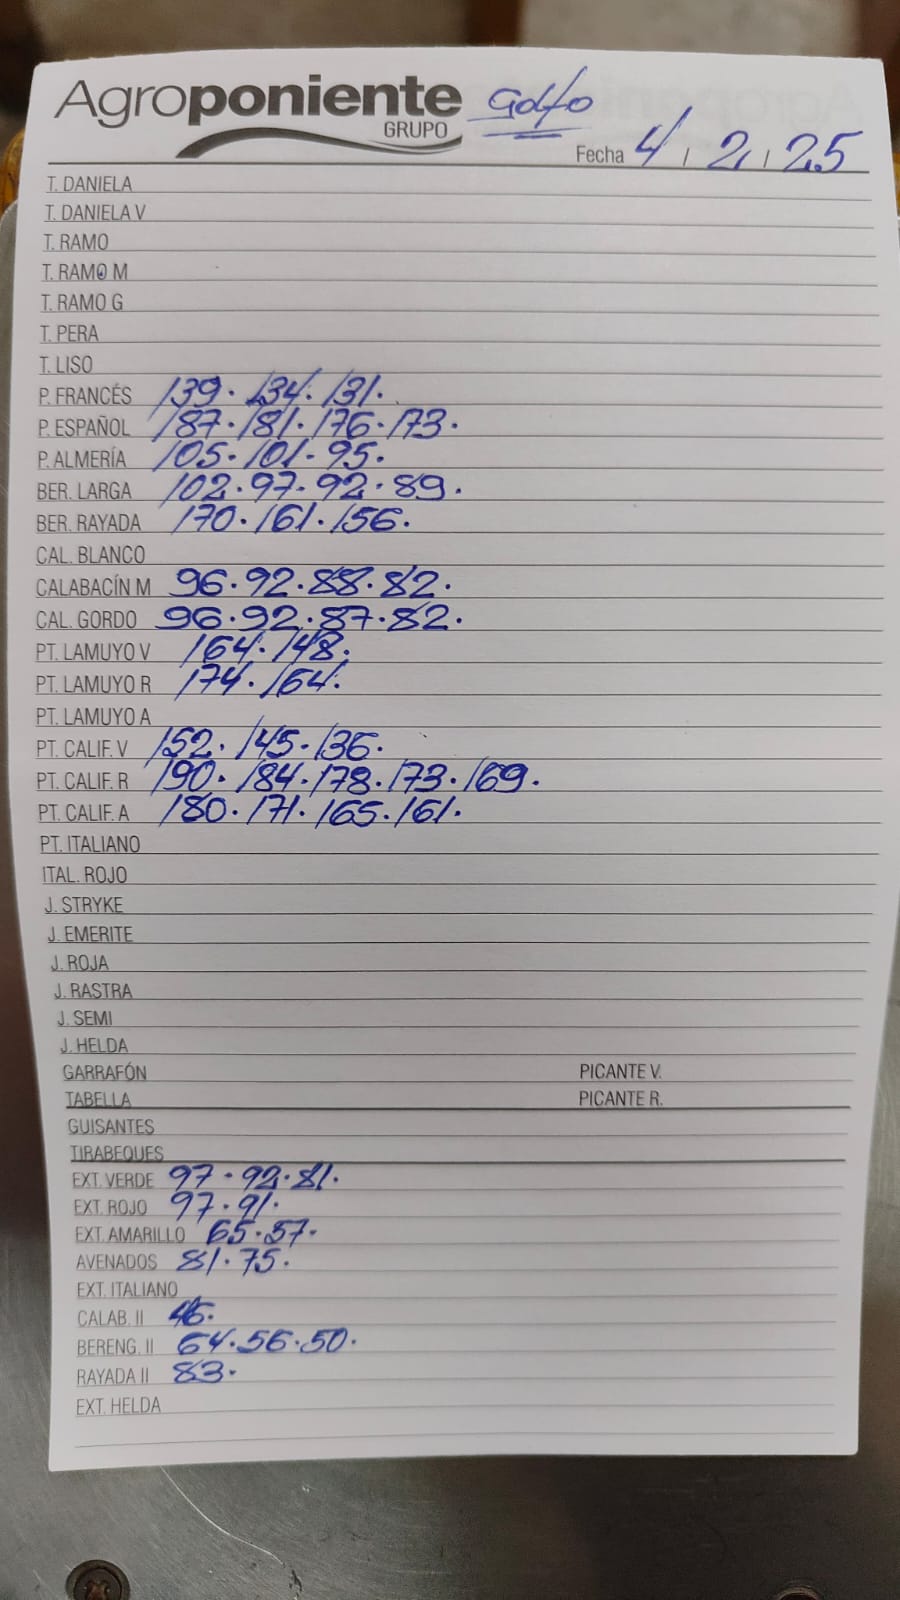 Agroponiente Golfo
GRUPO
Fecha 4 / 2 / 25
T. DANIELA
T. DANIELA V
T. RAMO
T. RAMO M
T. RAMO G
T. PERA
T. LISO
P. FRANCÉS 139. 134. 131.
P. ESPAÑOL 187. 181. 176. 173.
P. ALMERÍA 105. 101. 95.
BER. LARGA 102. 97. 92. 89.
BER. RAYADA 170. 161. 156.
CAL. BLANCO
CALABACÍN M 96. 92. 88. 82.
CAL. GORDO 96. 92. 87. 82.
PT. LAMUYO V 164. 148.
PT. LAMUYO R 174. 164.
PT. LAMUYO A
PT. CALIF. V 152. 145. 136.
PT. CALIF. R 190. 184. 178. 173. 169.
PT. CALIF. A 180. 171. 165. 161.
PT. ITALIANO
ITAL. ROJO
J. STRYKE
J. EMERITE
J. ROJA
J. RASTRA
J. SEMI
J. HELDA
GARRAFÓN PICANTE V.
TABELLA PICANTE R.
GUISANTES
TIRABEQUES
EXT. VERDE 97. 92. 81.
EXT. ROJO 97. 91.
EXT. AMARILLO 65. 57.
AVENADOS 81. 75.
EXT. ITALIANO
CALAB. II 46.
BERENG. II 64. 56. 50.
RAYADA II 83.
EXT. HELDA